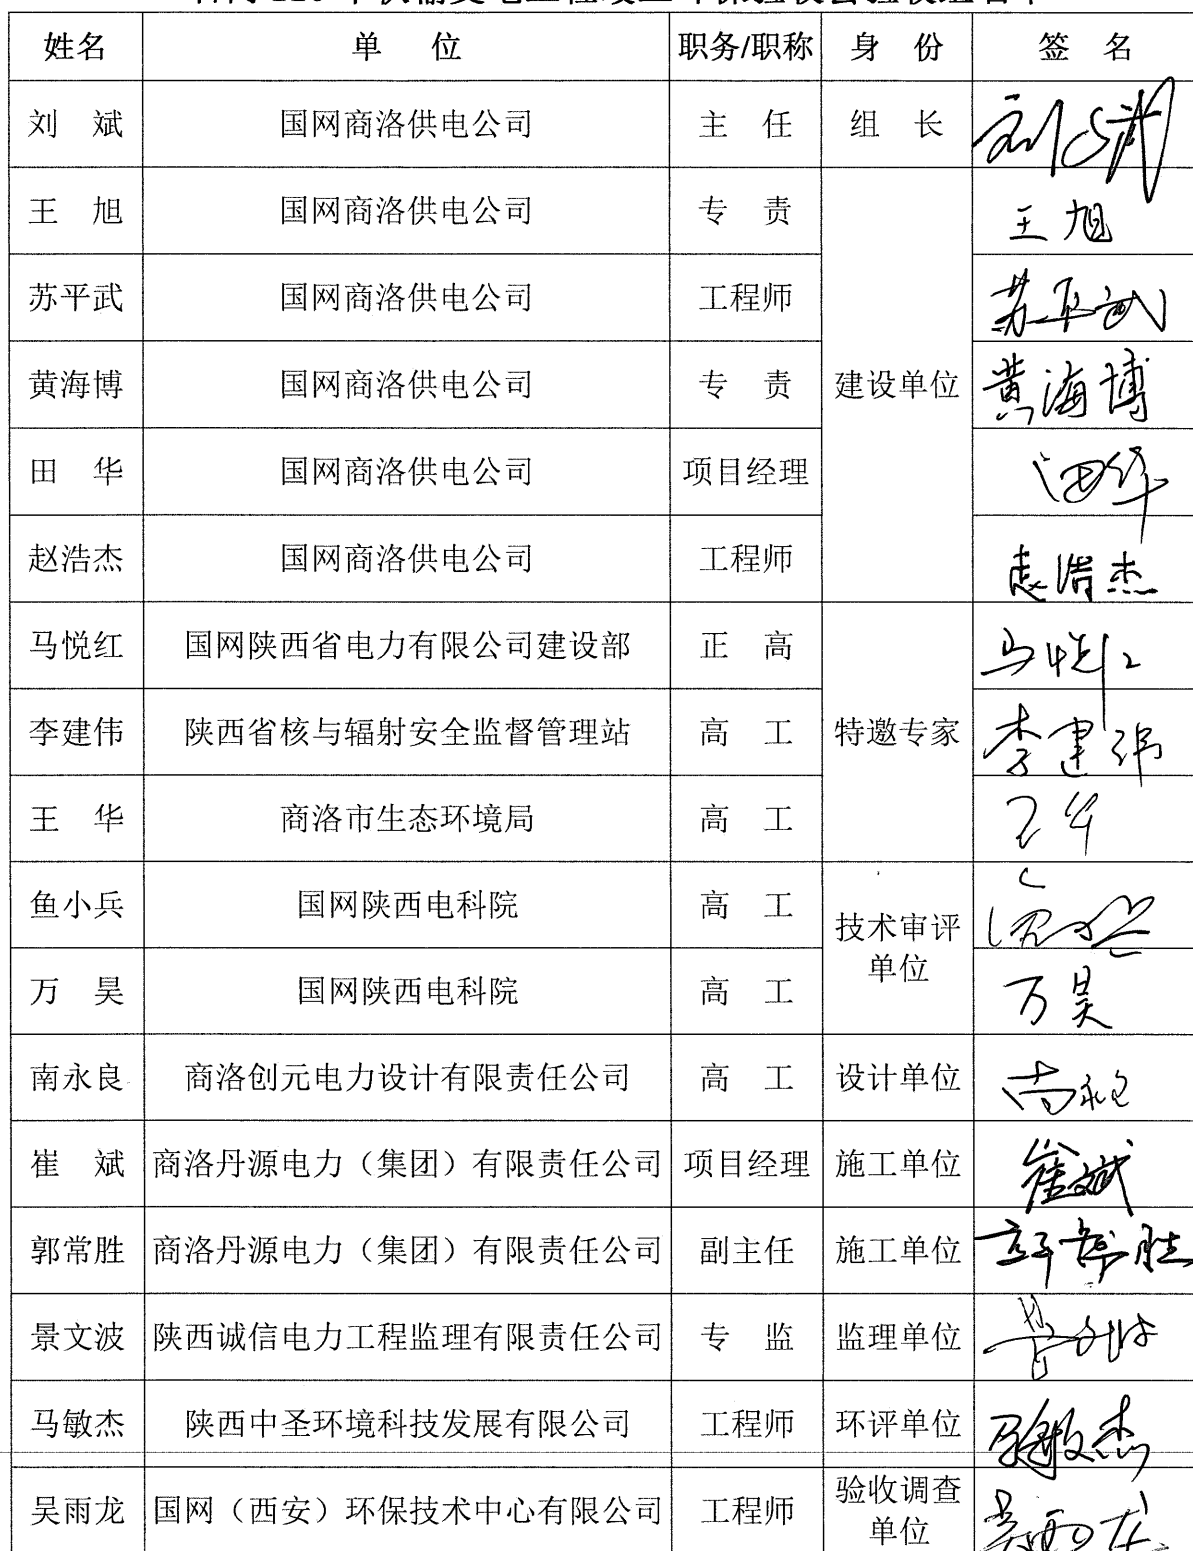 姓名 单 位 职务/职称 身 份 签 名
刘 斌 国网商洛供电公司 主 任 组 长 刘斌
王 旭 国网商洛供电公司 专 责 王旭
苏平武 国网商洛供电公司 工程师 苏平武
黄海博 国网商洛供电公司 专 责 建设单位 黄海博
田 华 国网商洛供电公司 项目经理 田华
赵浩杰 国网商洛供电公司 工程师 赵浩杰
马悦红 国网陕西省电力有限公司建设部 正 高 马悦红
李建伟 陕西省核与辐射安全监督管理站 高 工 特邀专家 李建伟
王 华 商洛市生态环境局 高 工 王华
鱼小兵 国网陕西电科院 高 工 鱼小兵
技术审评
单位
万 昊 国网陕西电科院 高 工 万昊
南永良 商洛创元电力设计有限责任公司 高 工 设计单位 南永良
崔 斌 商洛丹源电力（集团）有限责任公司 项目经理 施工单位 崔斌
郭常胜 商洛丹源电力（集团）有限责任公司 副主任 施工单位 郭常胜
景文波 陕西诚信电力工程监理有限责任公司 专 监 监理单位 景文波
马敏杰 陕西中圣环境科技发展有限公司 工程师 环评单位 马敏杰
吴雨龙 国网（西安）环保技术中心有限公司 工程师 验收调查 吴雨龙
单位